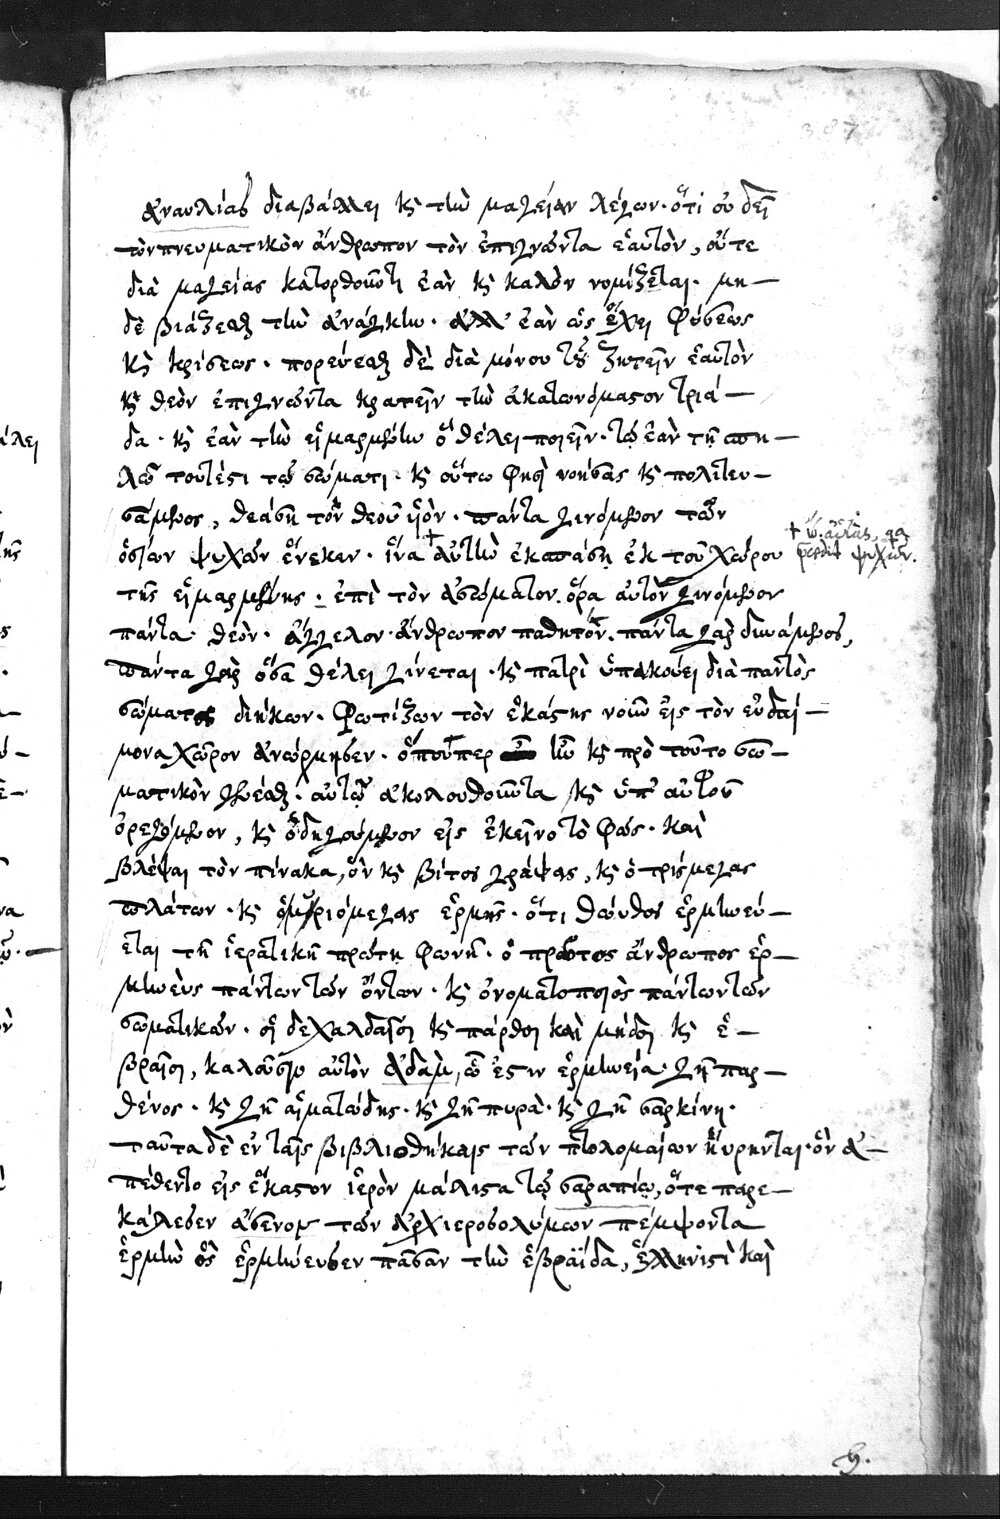 ἀναυλίας διαβάλλει κ̀ τὴν μαγείαν λέγων· ὅτι οὐ δεῖ
τὸν πνευματικὸν ἄνθρωπον τὸν ἐπιγνῶντα ἑαυτὸν, οὔτε
διὰ μαγείας κατορθοῦν τι ἐὰν κ̀ καλὸν νομίζεται· μη-
δὲ βιάζεσθαι τὴν ἀνάγκην· ἀλλ' ἐὰν ὡς ἔχει φύσεως
κ̀ κρίσεως· πορεύεσθαι δὲ διὰ μόνου τοῦ ζητεῖν ἑαυτὸν
κ̀ θεὸν ἐπιγνῶντα κρατεῖν τὴν ἀκατωνόμαστον τριά-
δα· κ̀ ἐὰν τὴν εἱμαρμένην ὃ θέλει ποιεῖν· τῷ ἐὰν τῆ πη-
λῶ τουτέστι τῷ σώματι· κ̀ οὕτω φησὶ νοήσας κ̀ πολιτευ-
σάμενος, θεάση τὸν θεοῦ υἱὸν· πάντα γινόμενον τῶν
ὁσίων ψυχῶν ἕνεκεν· ἵνα + αὐτὴν ἐκσπάση ἐκ τοῦ χώρου
τῆς εἱμαρμένης· ἐπὶ τὸν ἀσώματον· ὅρα αὐτὸν γινόμενον
πάντα· θεὸν· ἄγγελον· ἄνθρωπον παθητόν· πάντα γὰρ δυνάμενος,
πάντα γὰρ ὅσα θέλει γίνεται· κ̀ πατρὶ ὑπακούει διὰ παντὸς
σώματος διήκων· φωτίζων τὸν ἑκάστης νοῦν εἰς τὸν εὐδαί-
μονα χῶρον ἀνώρμησεν· ὅπουπερ ἦν κ̀ πρὸ τοῦτο σω-
ματικὸν γενέσθαι· αὐτῶ ἀκολουθοῦντα κ̀ ὑπ' αὐτοῦ
ὀρεγόμενον, κ̀ ὁδηγούμενον εἰς ἐκεῖνο τὸ φῶς· καὶ
βλέψαι τὸν πίνακα, ὃν κ̀ βίτος γράψας, κ̀ ὁ τρίσμεγας
πλάτων· κ̀ ὁ μυριόμεγας ἑρμῆς· ὅτι θώυθος ἑρμηνεύ-
εται τῆ ἱερατικῆ πρώτη φωνῆ· ὁ πρῶτος ἄνθρωπος ἑρ-
μηνεὺς πάντων τῶν ὄντων· κ̀ ὀνοματοποιὸς πάντων τῶν
σωματικῶν· οἱ δὲ χαλδαῖοι κ̀ πάρθοι καὶ μῆδοι κ̀ ἑ-
βραῖοι, καλοῦσιν αὐτὸν ἀδὰμ, ὧ ἐστιν ἑρμηνεία· γῆ παρ-
θένος· κ̀ γῆ αἱματώδης· κ̀ γῆ πυρὰ· κ̀ γῆ σαρκίνη·
ταῦτα δὲ ἐν ταῖς βιβλιοθήκαις τῶν πτολομαίων ηὕρηνται· ὃν ἀ-
πέθεντο εἰς ἕκαστον ἱερὸν μάλιστα τῷ σαραπίῳ, ὅτε παρε-
κάλεσεν ἀσενομ τῶν ἀρχιεροσολύμων πέμψοντα
ἑρμῆν ὃς ἑρμήνευσεν πᾶσαν τὴν ἑβραΐδα, ἑλληνιστὶ καὶ